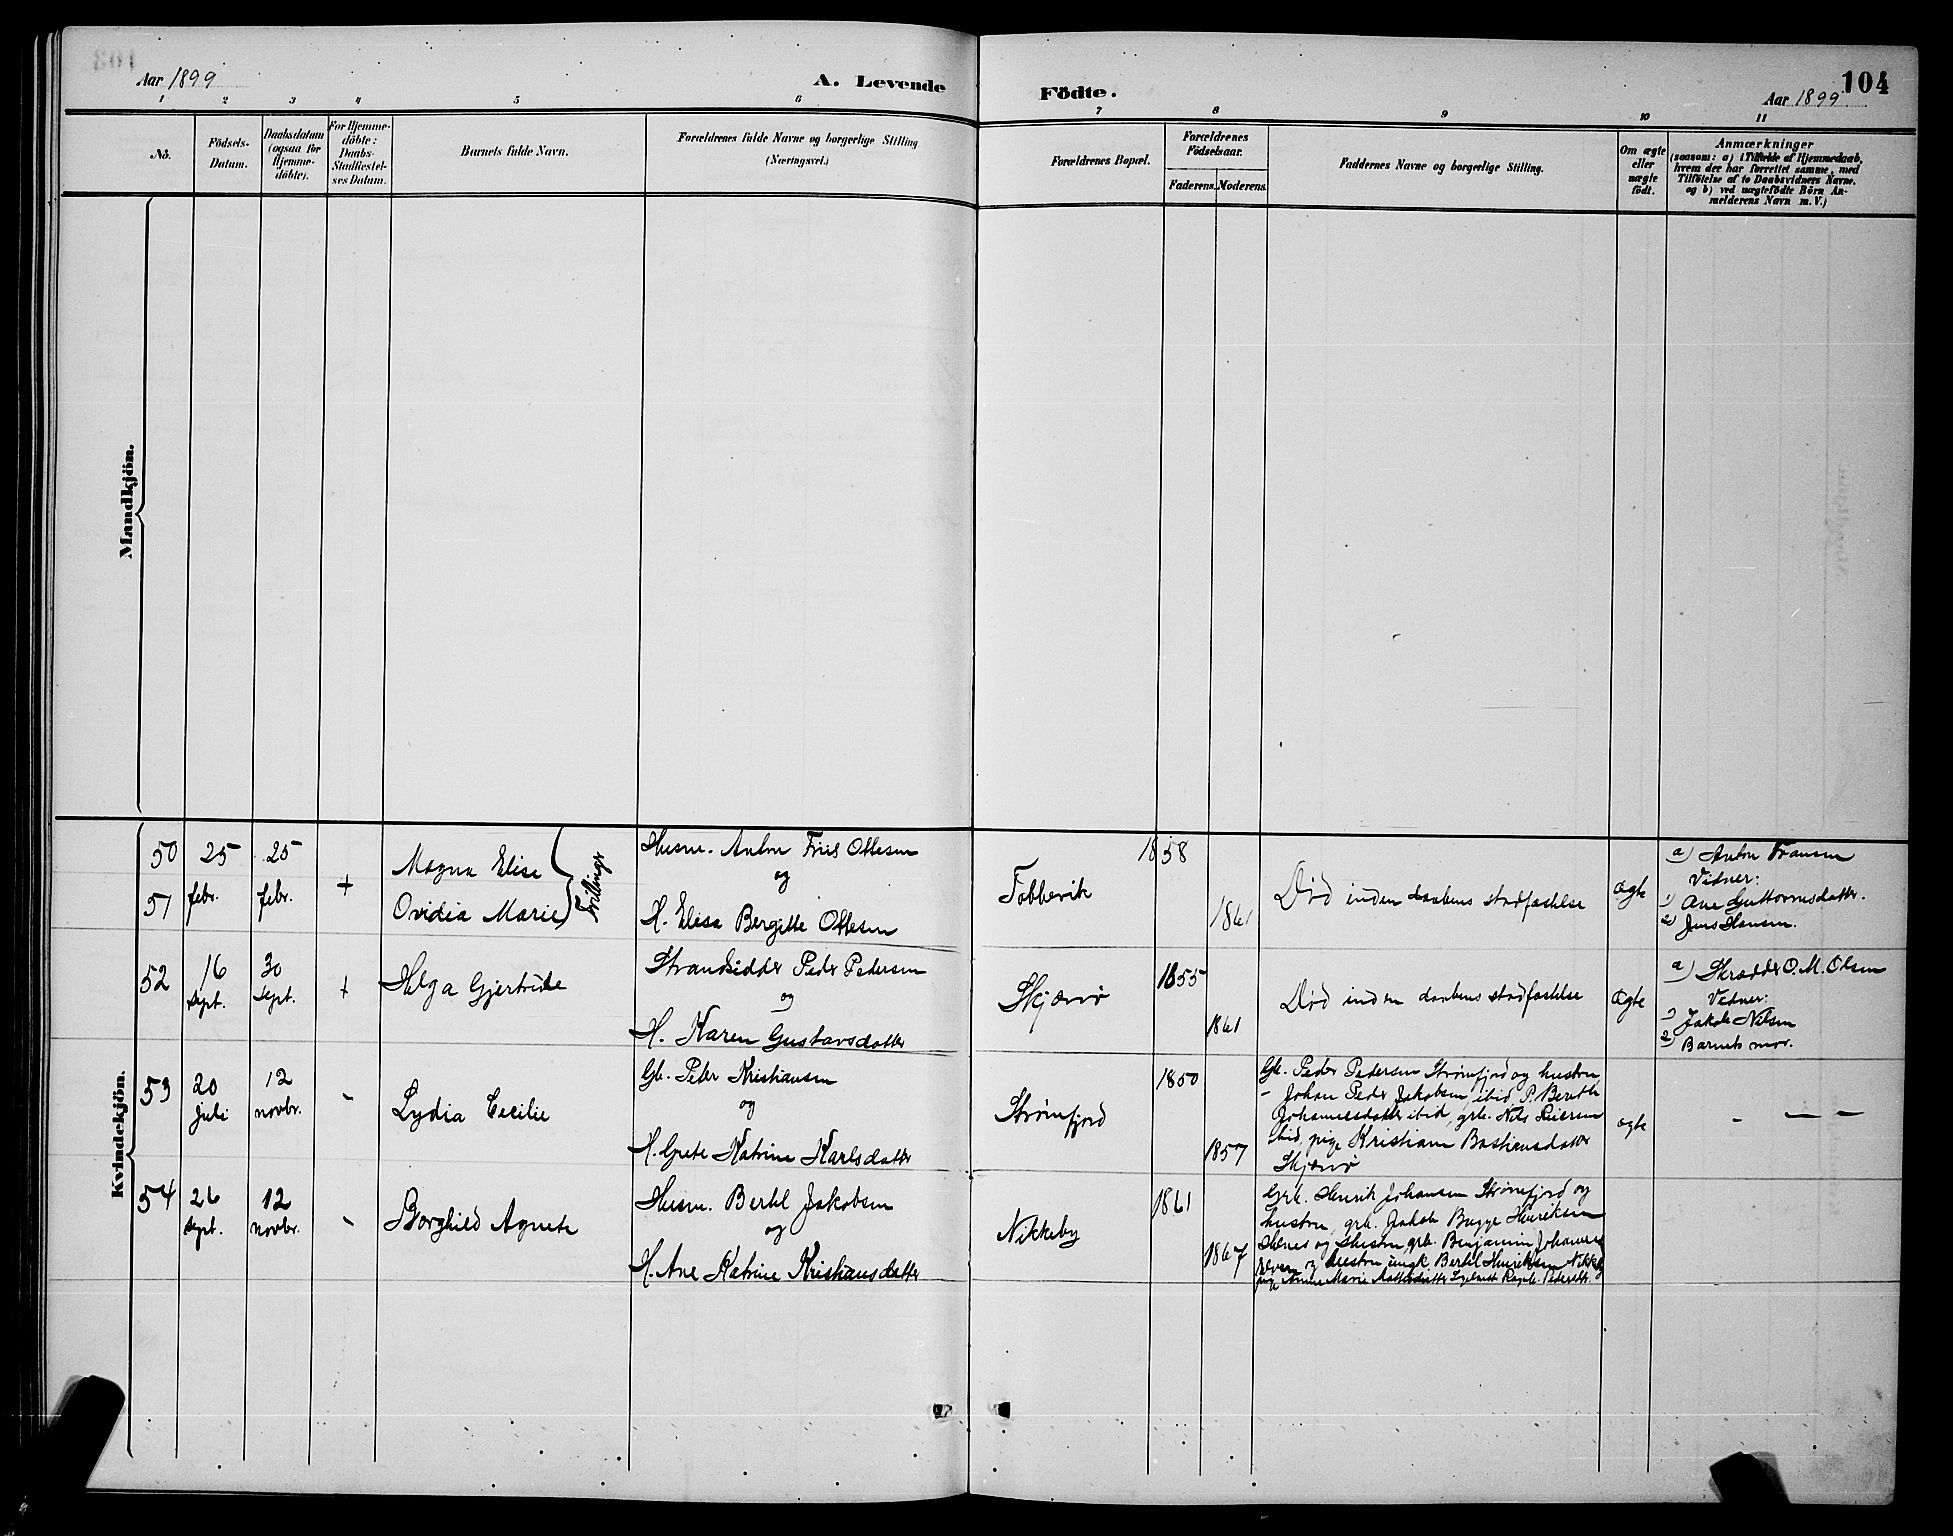 Aar 1899
A. Levende
Födte.
104
Aar 1899
1 2 3 4 5 6 7 8 9 10 11
No.
Födsels-
Datum.
Daabsdatum
(ogsaa for
Hjemme-
döbte).
For Hjemme-
döbte:
Daabs-
Stadfæstel-
ses Datum.
Barnets fulde Navn.
Forældrenes fulde Navne og borgerlige Stilling
(Næringsvei.)
Forældrenes Bopæl.
Forældrenes
Födselsaar.
Faderens. Moderens.
Faddernes Navne og borgerlige Stilling.
Om ægte
eller
uægte
födt.
Anmærkninger
(saasom: a) i Tilfælde af Hjemmedaab,
hvem der har forrettet samme, med
Tilföielse af to Daabsvidners Navne,
og b) ved uægtefödte Börn An-
melderens Navn m. V.)
Mandkjön.
Kvindekjön.
50
51
25
febr.
25
febr.
+
Magna Elise
Ovidia Marie
Trillinger
Husm. Anton Friis Ottesen
og
H. Elisa Bergitte Ottesen
Tobbevik
1858
1861
Død inden daabens stadfæstelse
ægte
a) Anton Fransen
Vidner:
1) Ane Guttormsdatter.
2) Jens Hansen.
52
16
sept.
30
sept.
+
Helga Gjertrude
Strandsidder Peder Pedersen
og
H. Karen Gustavsdatter
Skjærvø
1855
1861
Død inden daabens stadfæstelse
ægte
a) Skrædder O. M. Olsen
Vidner:
1) Jakob Nilsen
2) Barnets mor.
53
20
juli
12
novbr.
-
Lydia Cecilie
Gb. Peder Kristiansen
og
H. Grete Katrine Karlsdatter
Strømfjord
1850
1857
Gb. Peder Pedersen Strømfjord og hustru
- Johan Peder Jakobsen, ibid, P. Berethe
Johannesdatter ibid, grb. Nils
ibid, pige Kristiane Bastiansdatter
Skjærvø
ægte
- — —
54
26
sept.
12
novbr.
-
Borghild Agnete
Husm. Bertel Jakobsen
og
H. Ane Katrine Kristiansdatter
Nikkeby
1861
1867
Grb. Henrik Johansen Strømfjord og
hustru, grb. Jakob Bugge Henriksen
og Hustru, grb. Benjamin
og hustru, ungk. Bertel Henriksen Nikkeby
pige Anne Marie